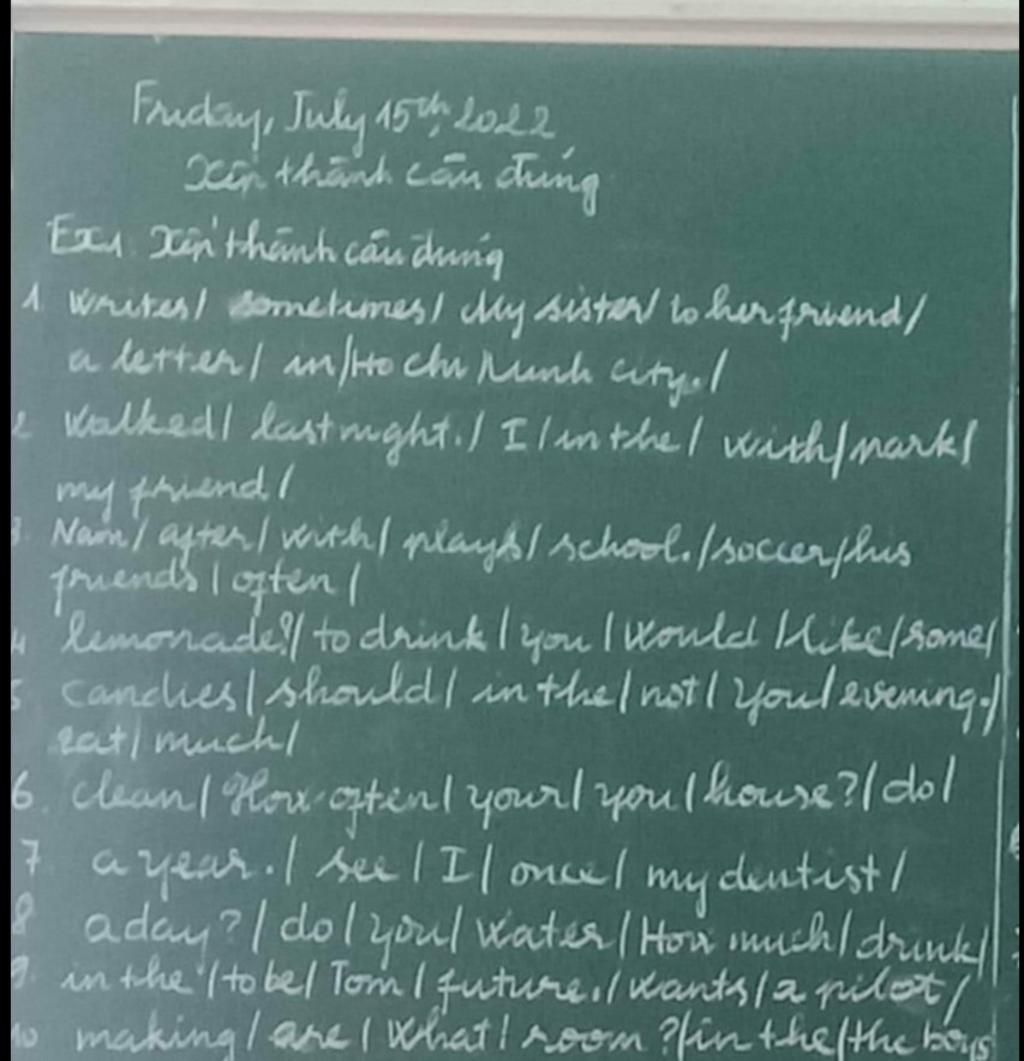 Friday, July 15th, 2022
Xếp thành câu đúng
Ex1. Xếp thành câu đúng
1 writes/ sometimes/ My sister/ to her friend/
a letter/ in/Ho Chi Minh city./
2 walked/ last night./ I/in the/ with/park/
my friend/
3. Nam/ after/ with/ plays/ school./soccer/his
friends/ often/
4 lemonade?/ to drink/ you/ would/like/some/
5 candies/ should/ in the/ not/ You/ evening./
eat/ much/
6. clean/ How often/ your/ you/ house?/ do/
7 a year./ see/ I/ once/ my dentist/
8 a day?/ do/ you/ water/ How much/ drink/
9. in the/to be/ Tom/ future./ wants/a pilot/
10 making/ are/ What/ room?/in the/the boys